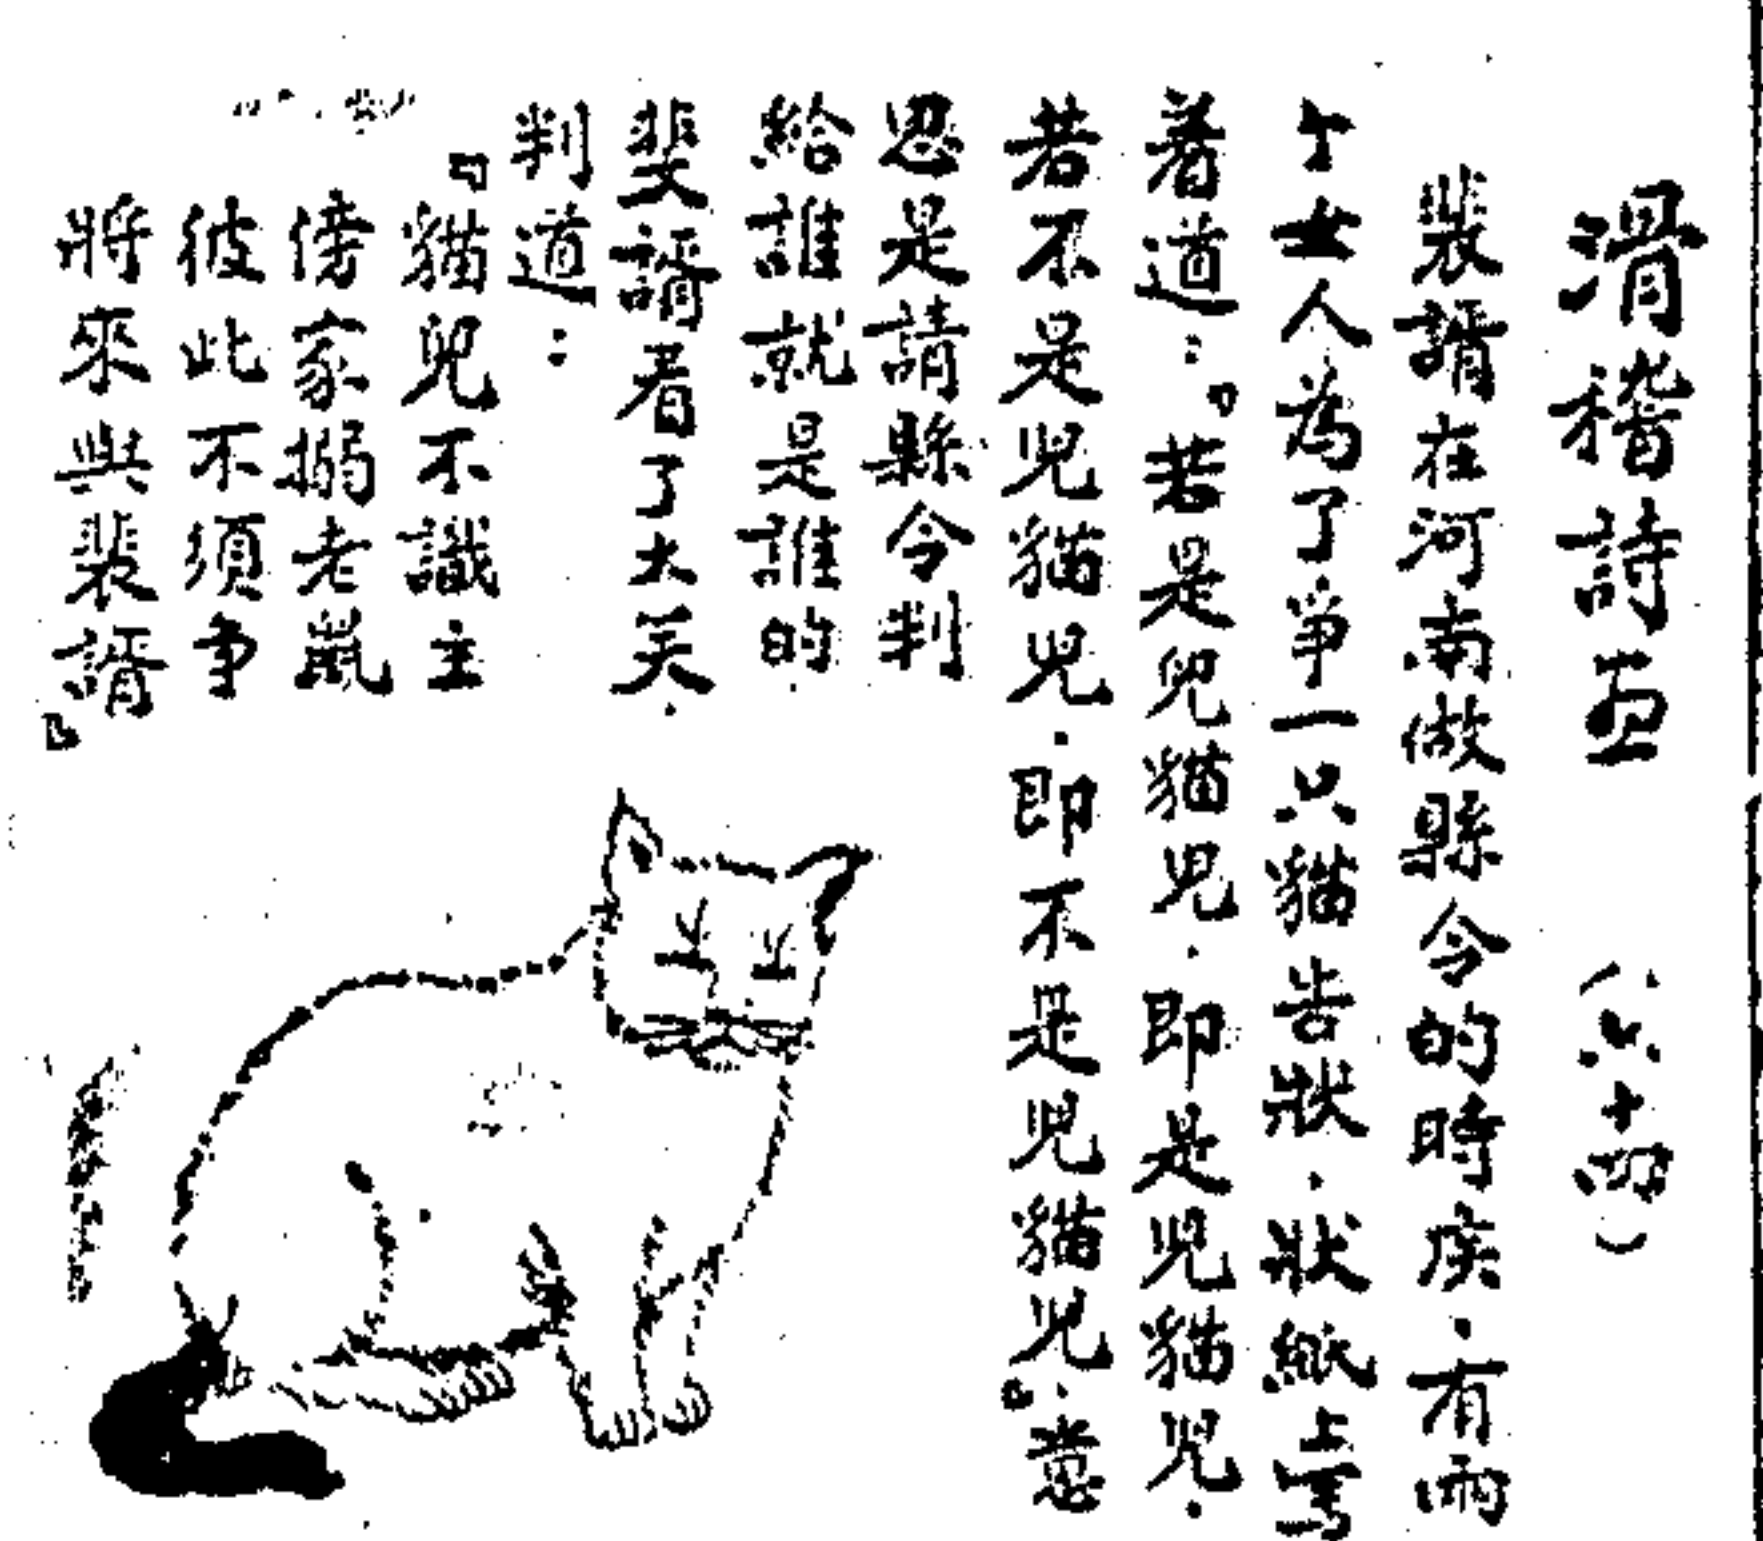 滑稽詩画 (六十四)
裴諝在河南做縣令的時候．有兩
个女人為了爭一只貓告狀．狀紙上写
着道：『若是兒貓児．即是児貓児．
若不是児貓児．即不是児貓児』．意
思是請縣令判
給誰就是誰的．
斐諝看了大笑．
判道：
『貓兒不識主
傍家搦老鼠
彼此不須争
將來與裴諝』